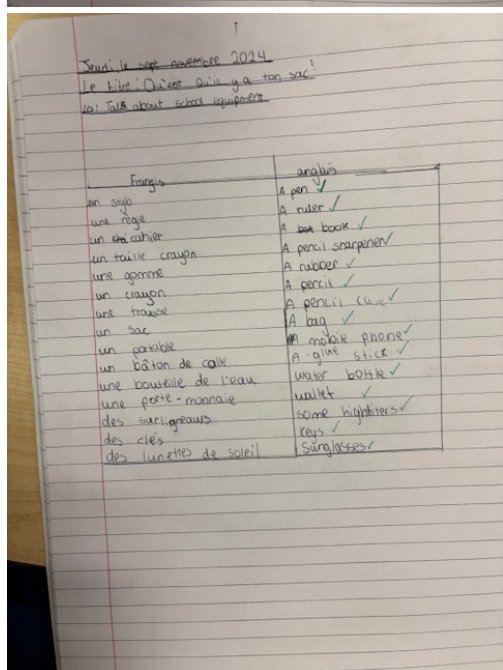 Jeudi le sept novembre 2024
Le titre: Qu'est Qu'il y a ton sac!
Lo: Talk about school equipment
Français anglais
un stylo A pen ✓
une regle A ruler ✓
un cahier A book ✓
un taille crayon A pencil sharpener ✓
une gomme A rubber ✓
un crayon A pencil ✓
une trousse A pencil case ✓
un sac A bag ✓
un portable A mobile phone ✓
un bâton de calle A glue stick ✓
une bouteille de l'eau water bottle ✓
une porte-monnaie wallet ✓
des surligneaurs some highliters ✓
des clés keys ✓
des lunettes de soleil sunglasses ✓